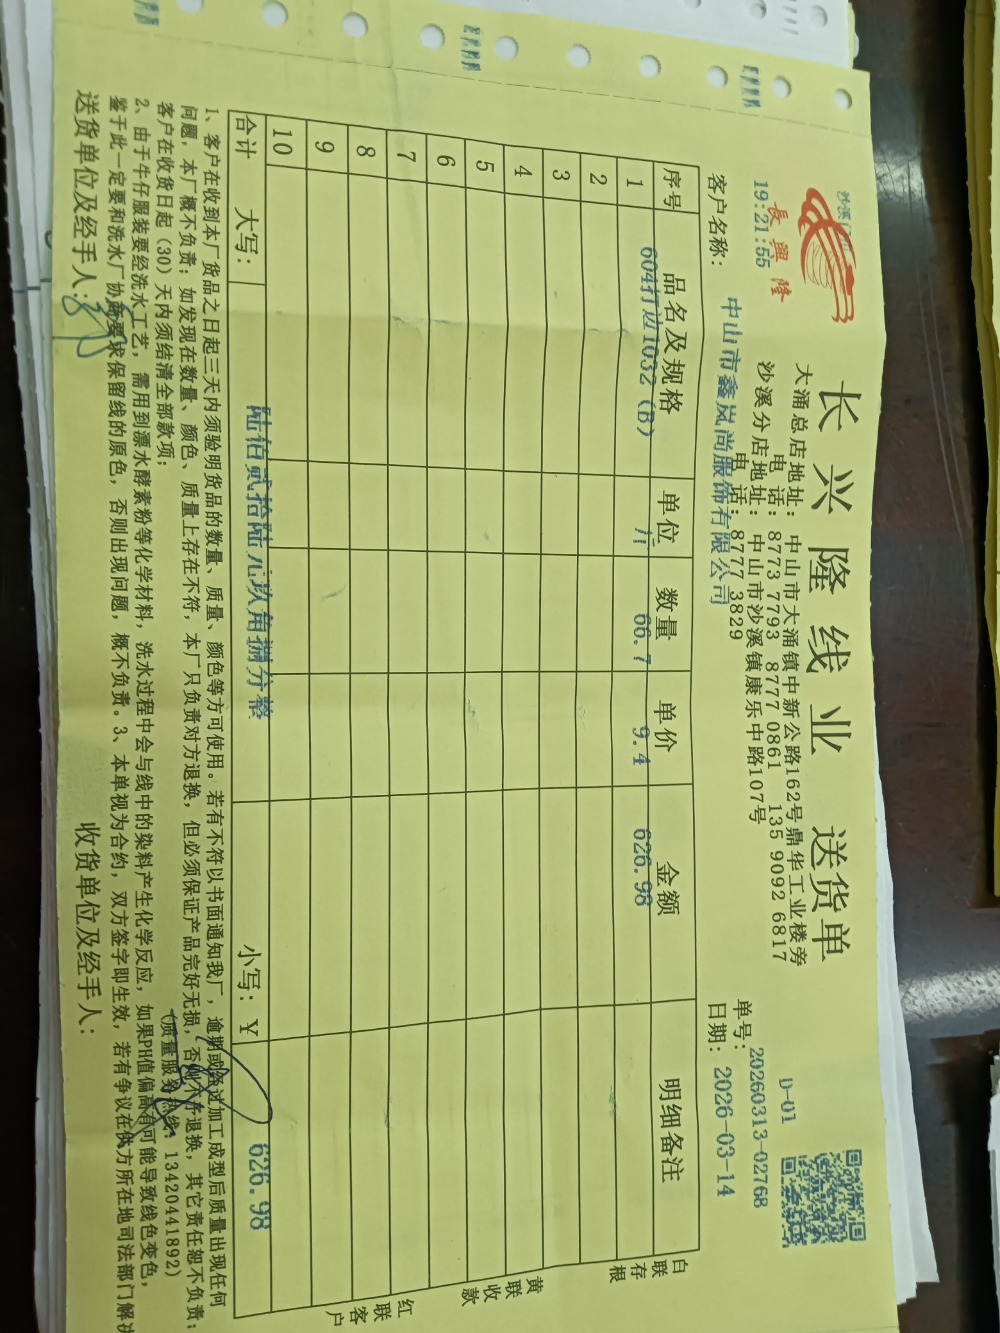 长兴隆线业 送货单
長興隆
大涌总店地址：中山市大涌镇中新公路162号鼎华工业楼旁
电 话：8773 7793 8777 0861 135 9092 6817
沙溪分店地址：中山市沙溪镇康乐中路107号
电 话：8777 3829
D-01
19:21:55
单号：20260313-02768
客户名称：中山市鑫岚尚服饰有限公司
日期：2026-03-14
序号 品名及规格 单位 数量 单价 金额 明细备注
1 604打边1032（B） 斤 66.7 9.4 626.98
2
3
4
5
6
7
8
9
10
合计 大写： 陆佰贰拾陆元玖角捌分整 小写：￥ 626.98
白联存根
黄联收款
红联客户
1、客户在收到本厂货品之日起三天内须验明货品的数量、质量、颜色等方可使用。若有不符以书面通知我厂，逾期或经过加工成型后质量出现任何
问题，本厂概不负责；如发现在数量、颜色、质量上存在不符，本厂只负责对方退换，但必须保证产品完好无损，否则不予退换，其它责任恕不负责；
客户在收货日起（30）天内须结清全部款项； （质量服务热线：13420441892）
2、由于牛仔服装要经洗水工艺，需用到漂水酵素粉等化学材料，洗水过程中会与线中的染料产生化学反应，如果PH值偏高有可能导致线色变色，
鉴于此一定要和洗水厂协商要求保留线的原色，否则出现问题，概不负责。3、本单视为合约，双方签字即生效，若有争议在供方所在地司法部门解决
送货单位及经手人： 收货单位及经手人：